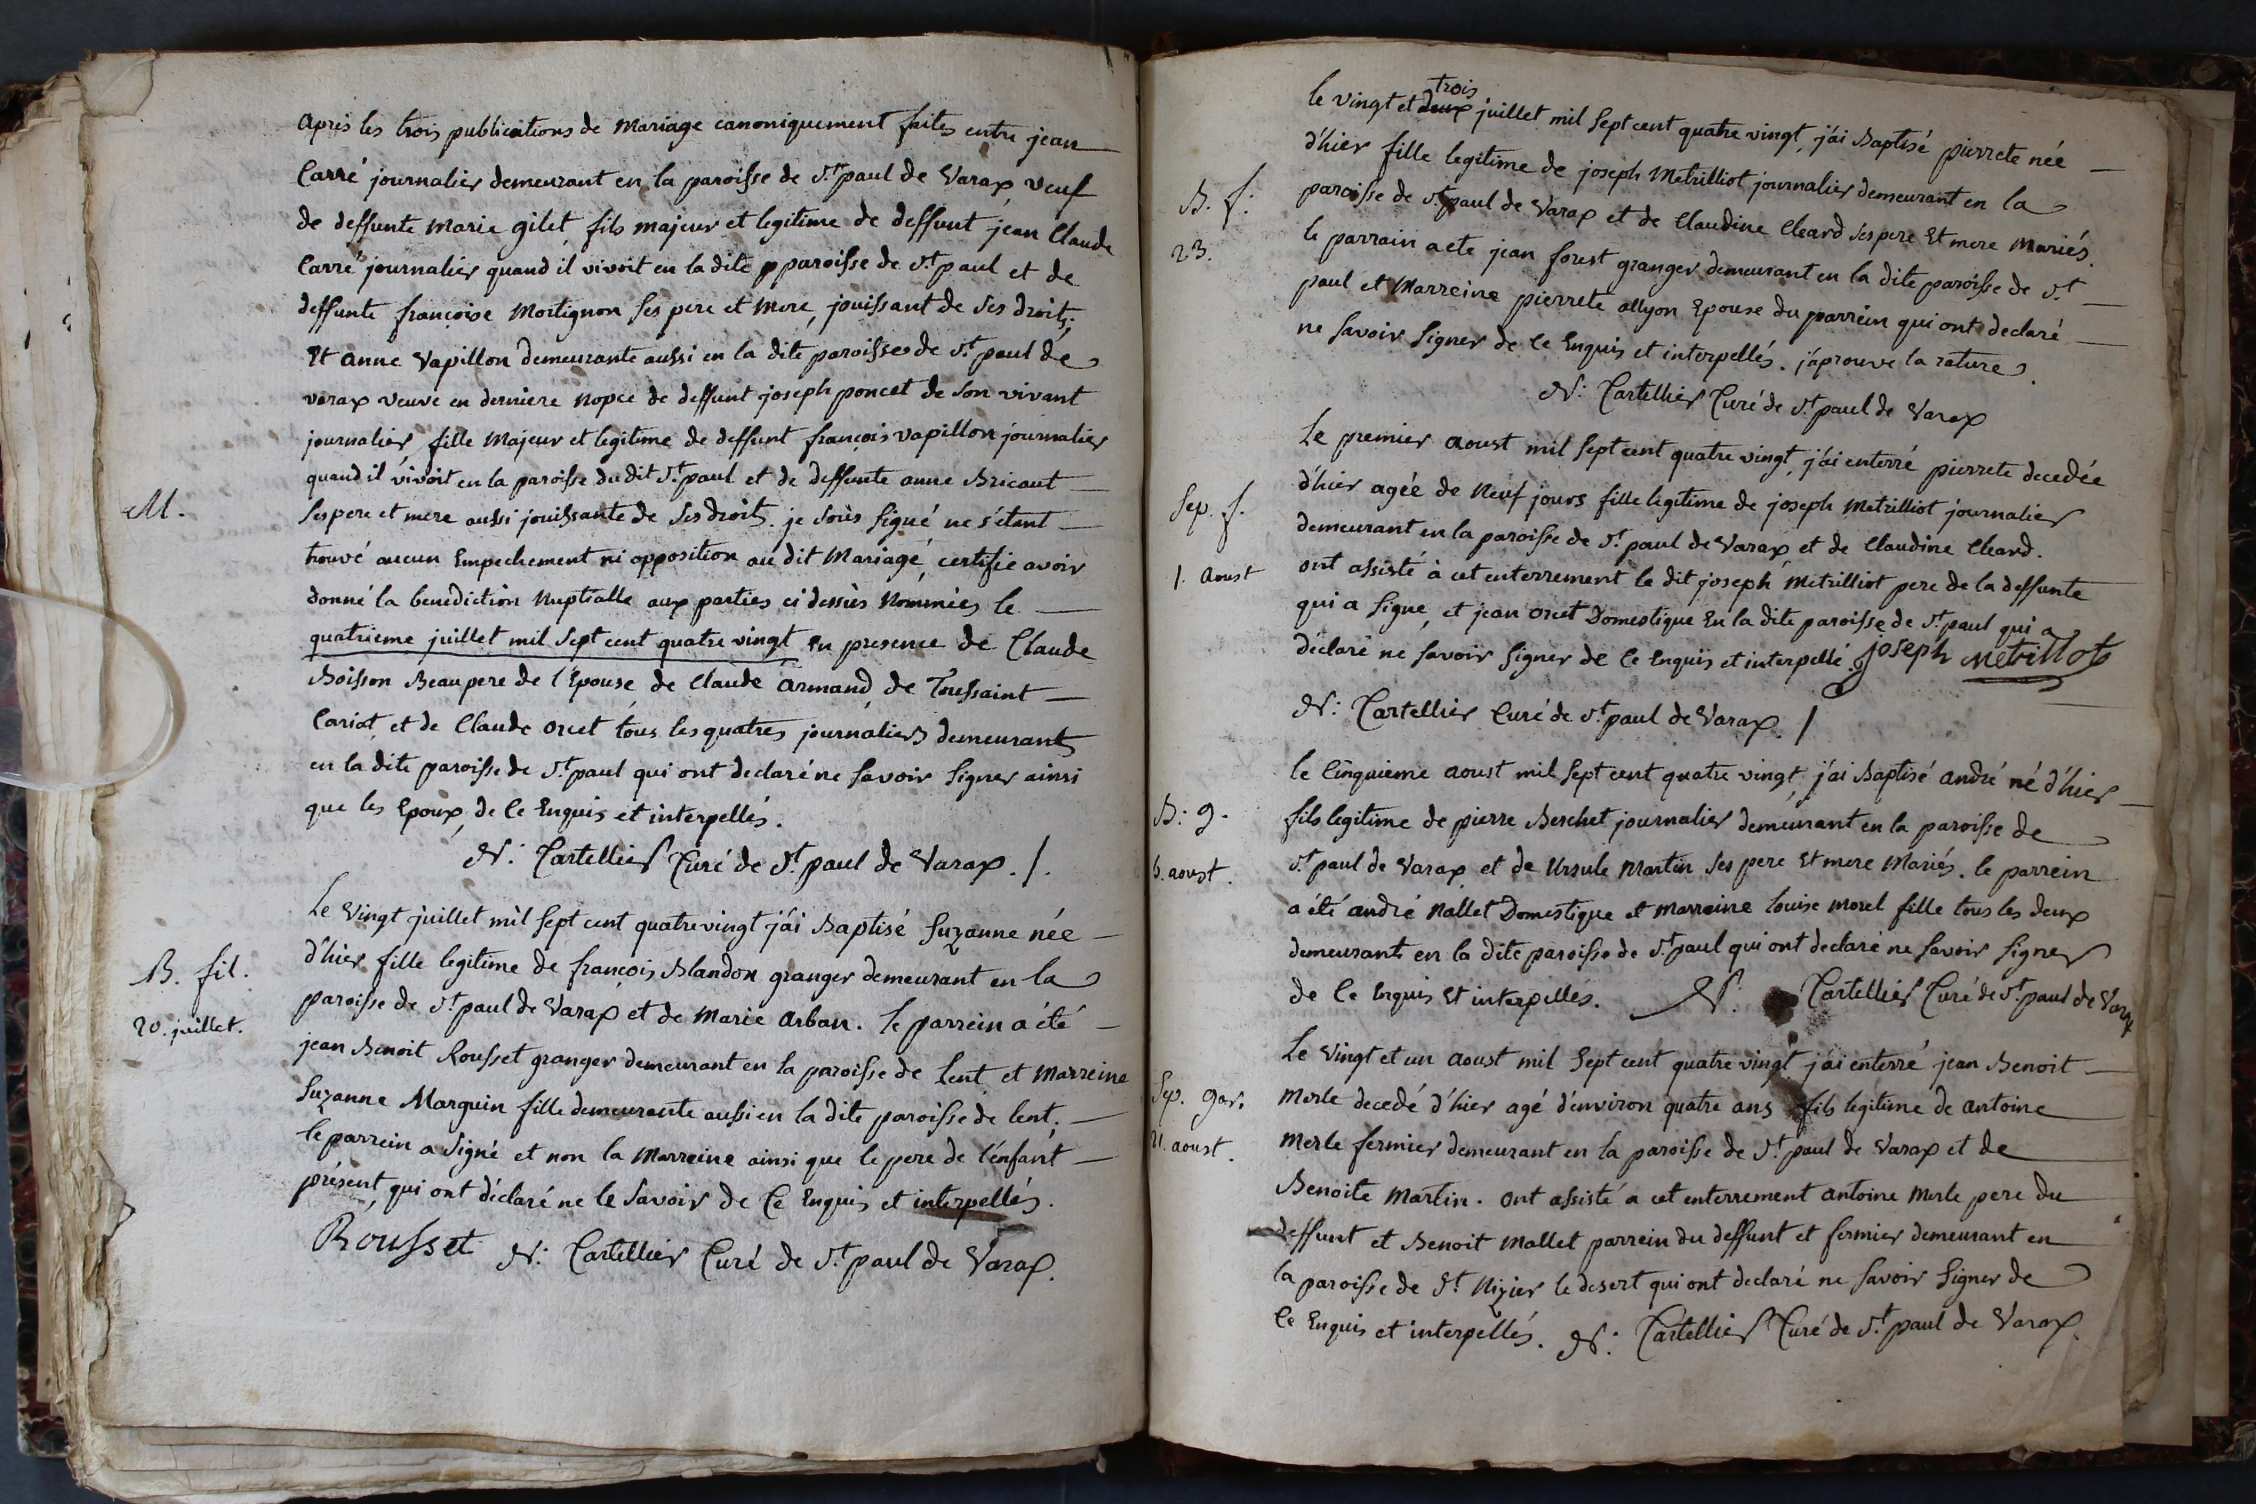 après les trois publications de Mariage canoniquement faites entre jean
Carré journalier demeurant en la paroisse de St paul de Varax veuf
de deffunte Marie gilet, fils majeur et legitime de deffunt jean Claude
Carré journalier quand il vivoit en la dite pparoisse de St paul et de
deffunte françoise Mortignon ses pere et mere, jouissant de ses droits;
Et anne Vapillon demeurante aussi en la dite paroisse de St paul de
varax veuve en derniere Nopce de deffunt joseph poncet de son vivant
journalier, fille Majeur et legitime de deffunt françois vapillon journalier
quand il vivoit en la paroisse du dit St paul et de deffunte anne Bricaut
M.
ses pere et mere aussi jouissante de ses droits. je soùs signé ne s'étant
trouvé aucun Empechement ni opposition au dit Mariage, certifie avoir
donné la benediction Nuptialle aux parties ci dessùs Nommées le
quatrieme juillet mil sept cent quatre vingt En presence de Claude
Boisson Beaupere de l'Epouse, de Claude armand, de Toussaint
Cariat et de Claude orcet tous les quatres journaliers demeurants
en la dite paroisse de St paul qui ont declaré ne savoir signer ainsi
que les Epoux, de Ce Enquis et interpellés.
N: Cartellier Curé de St paul de Varax. /.
Le Vingt juillet mil sept cent quatre vingt j'ai Baptisé Suzanne née
B. fil.
d'hier fille legitime de françois Blandon granger demeurant en la
20. juillet.
paroisse de St paul de Varax et de Marie arban. Le parrein a été
jean Benoit Rousset granger demeurant en la paroisse de lent et Marreine
Suzanne Marguin fille demeurante aussi en la dite paroisse de lent,
le parrein a signé et non la Marreine ainsi que le pere de l'enfant
présent, qui ont déclaré ne le savoir de Ce Enquis et interpellés.
Rousset N: Cartellier Curé de St paul de Varax.
trois
le vingt et deux juillet mil sept cent quatre vingt, j'ai Baptisé pierrete née
B. f.
d'hier fille legitime de joseph Metrilliot journalier demeurant en la
23.
paroisse de St paul de Varax et de Claudine Cleard ses pere Et mere Mariés.
le parrain a ete jean forest granger demeurant en la dite paroisse de St
paul et Marreine pierrete allyon Epouse du parrein qui ont declaré
ne savoir signer de Ce Enquis et interpellés. j'aprouve la rature.
N: Cartellier Curé de St paul de Varax
Le premier aoust mil sept cent quatre vingt, j'ai enterré pierrete decedée
Sep. f.
d'hier agée de Neuf jours fille legitime de joseph Metrilliot journalier
demeurant en la paroisse de St paul de Varax et de Claudine Cleard.
1. Aoust
ont assisté à cet enterrement le dit joseph Metrilliot pere de la deffunte
qui a signé, et jean orcet Domestique En la dite paroisse de St paul qui a
déclaré ne savoir signer de Ce Enquis et interpellé. joseph metrillot
N: Cartellier Curé de St paul de Varax. /
le Cinquieme aoust mil sept cent quatre vingt, j'ai Baptisé andré né d'hier
B: g.
fils legitime de pierre Berchet journalier demeurant en la paroisse de
aoust.
St paul de Varax et de Ursule Martin ses pere Et mere Mariés. le parrein
a été andré Nallet Domestique et Marreine louise morel fille tous les deux
demeurants en la dite paroisse de St paul qui ont declaré ne savoir signer
de Ce Enquis Et interpellés. N. Cartellier Curé de St paul de Varax
Le Vingt et un aoust mil sept cent quatre vingt j'ai enterré jean Benoit
Sep. gar.
Merle decedé d'hier agé d'environ quatre ans fils legitime de antoine
21. aoust.
Merle fermier demeurant en la paroisse de St paul de Varax et de
Benoite Martin. ont assisté a cet enterrement antoine Merle pere du
deffunt et Benoit Mallet parrein du deffunt et fermier demeurant en
la paroisse de St Nizier le desert qui ont declaré ne savoir signer de
Ce Enquis et interpellés. N: Cartellier Curé de St paul de Varax.